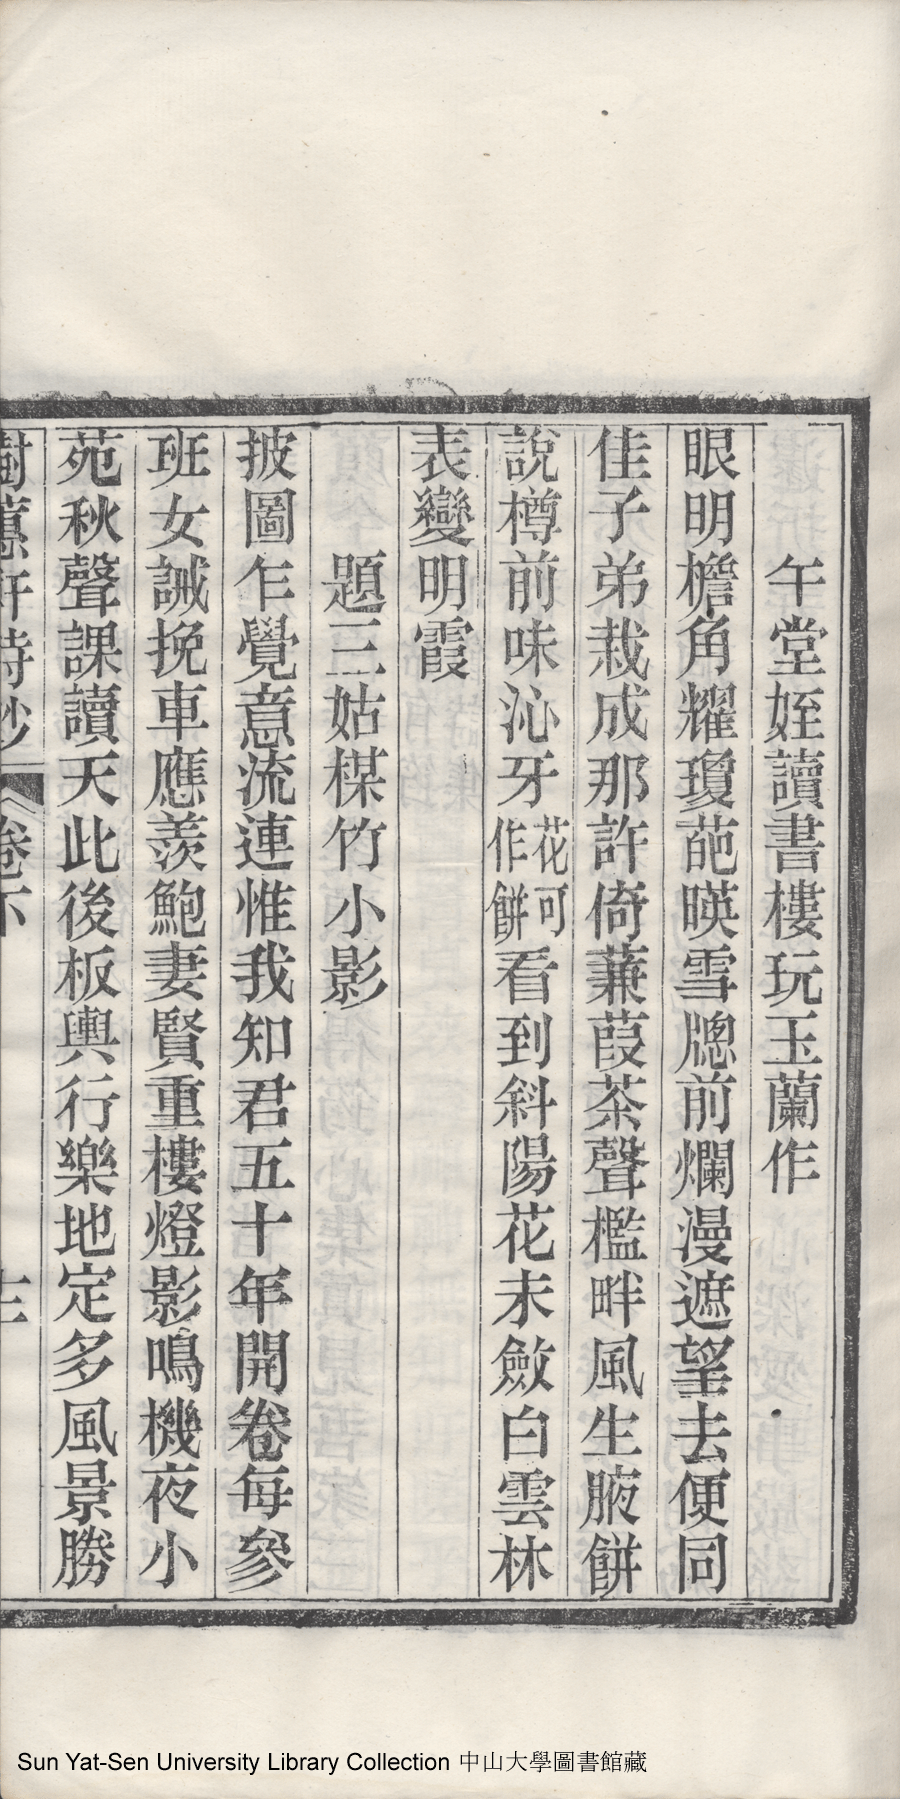 午堂姪讀書樓玩玉蘭作
眼明檐角耀瓊葩暎雪牕前爛漫遮望去便同
佳子弟栽成那許倚蒹葭茶聲檻畔風生腋餅
說樽前味沁牙花可作餅看到斜陽花未斂白雲林
表變明霞
題三姑楳竹小影
披圖乍覺意流連惟我知君五十年開卷每參
班女誡挽車應羨鮑妻賢重樓燈影鳴機夜小
苑秋聲課讀天此後板輿行樂地定多風景勝
樹蕙軒詩鈔 卷下
Sun Yat-Sen University Library Collection 中山大學圖書館藏